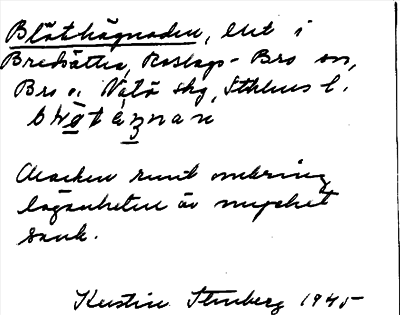 Blåthägnaden, lht i
Bredsättra, Roslags-Bro sn,
Bro o. Vätö skg, Sthlms l.
Marken runt omkring
lägenheten är mycket
sank.
Kerstin Stenberg 1945